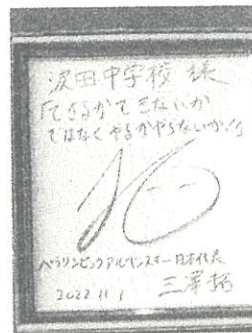 波田中学校 様
「できるかできないか
ではなくやるかやらないか!」
パラリンピックアルペンスキー日本代表
2022.11.1 三澤拓